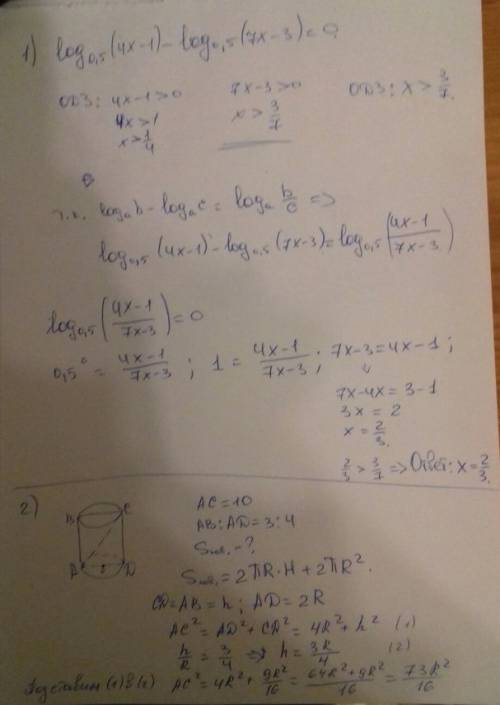 1) log₀,₅(4x-1) - log₀,₅(7x-3) = 0
ОДЗ: 4x-1>0 7x-3>0 ОДЗ: x > 3/7.
4x>1 x > 3/7
x > 1/4
т.к. logₐb - logₐc = logₐ b/c =>
log₀,₅(4x-1) - log₀,₅(7x-3) = log₀,₅((4x-1)/(7x-3))
log₀,₅((4x-1)/(7x-3)) = 0
0,5⁰ = (4x-1)/(7x-3); 1 = (4x-1)/(7x-3); 7x-3 = 4x-1;
7x-4x = 3-1
3x = 2
x = 2/3.
2/3 > 3/7 => Ответ: x = 2/3.
2) B C A D
AC = 10
AB : AD = 3 : 4
- ?
= 2πR·H + 2πR².
CD = AB = h; AD = 2R
AC² = AD² + CD² = 4R² + h² (1)
h/R = 3/4 => h = 3R/4 (2)
Подставим (1) в (2) AC² = 4R² + 9R²/16 = (64R² + 9R²)/16 = 73R²/16